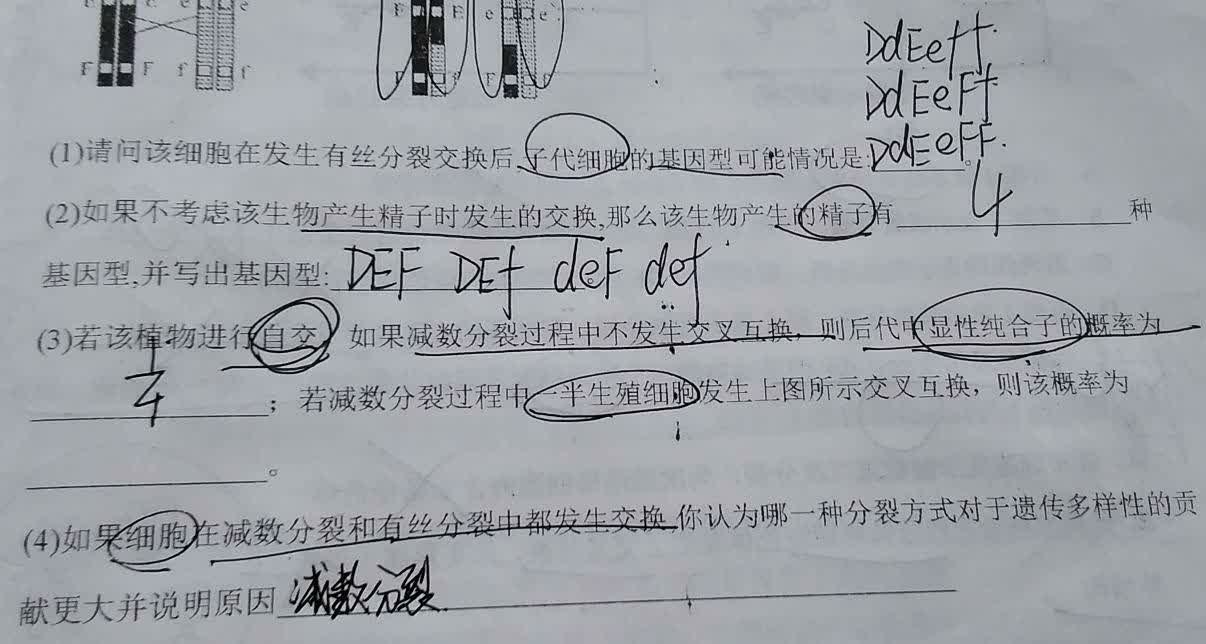 E E e e E E e e
F F f f F F F f
DdEeff.
DdEeFf.
DdEeFF.
(1)请问该细胞在发生有丝分裂交换后,子代细胞的基因型可能情况是:______。
(2)如果不考虑该生物产生精子时发生的交换,那么该生物产生的精子有 4 种
基因型,并写出基因型: DEF DEf deF def
(3)若该植物进行自交,如果减数分裂过程中不发生交叉互换,则后代中显性纯合子的概率为
; 若减数分裂过程中一半生殖细胞发生上图所示交叉互换,则该概率为
______。
(4)如果细胞在减数分裂和有丝分裂中都发生交换,你认为哪一种分裂方式对于遗传多样性的贡
献更大并说明原因 减数分裂.